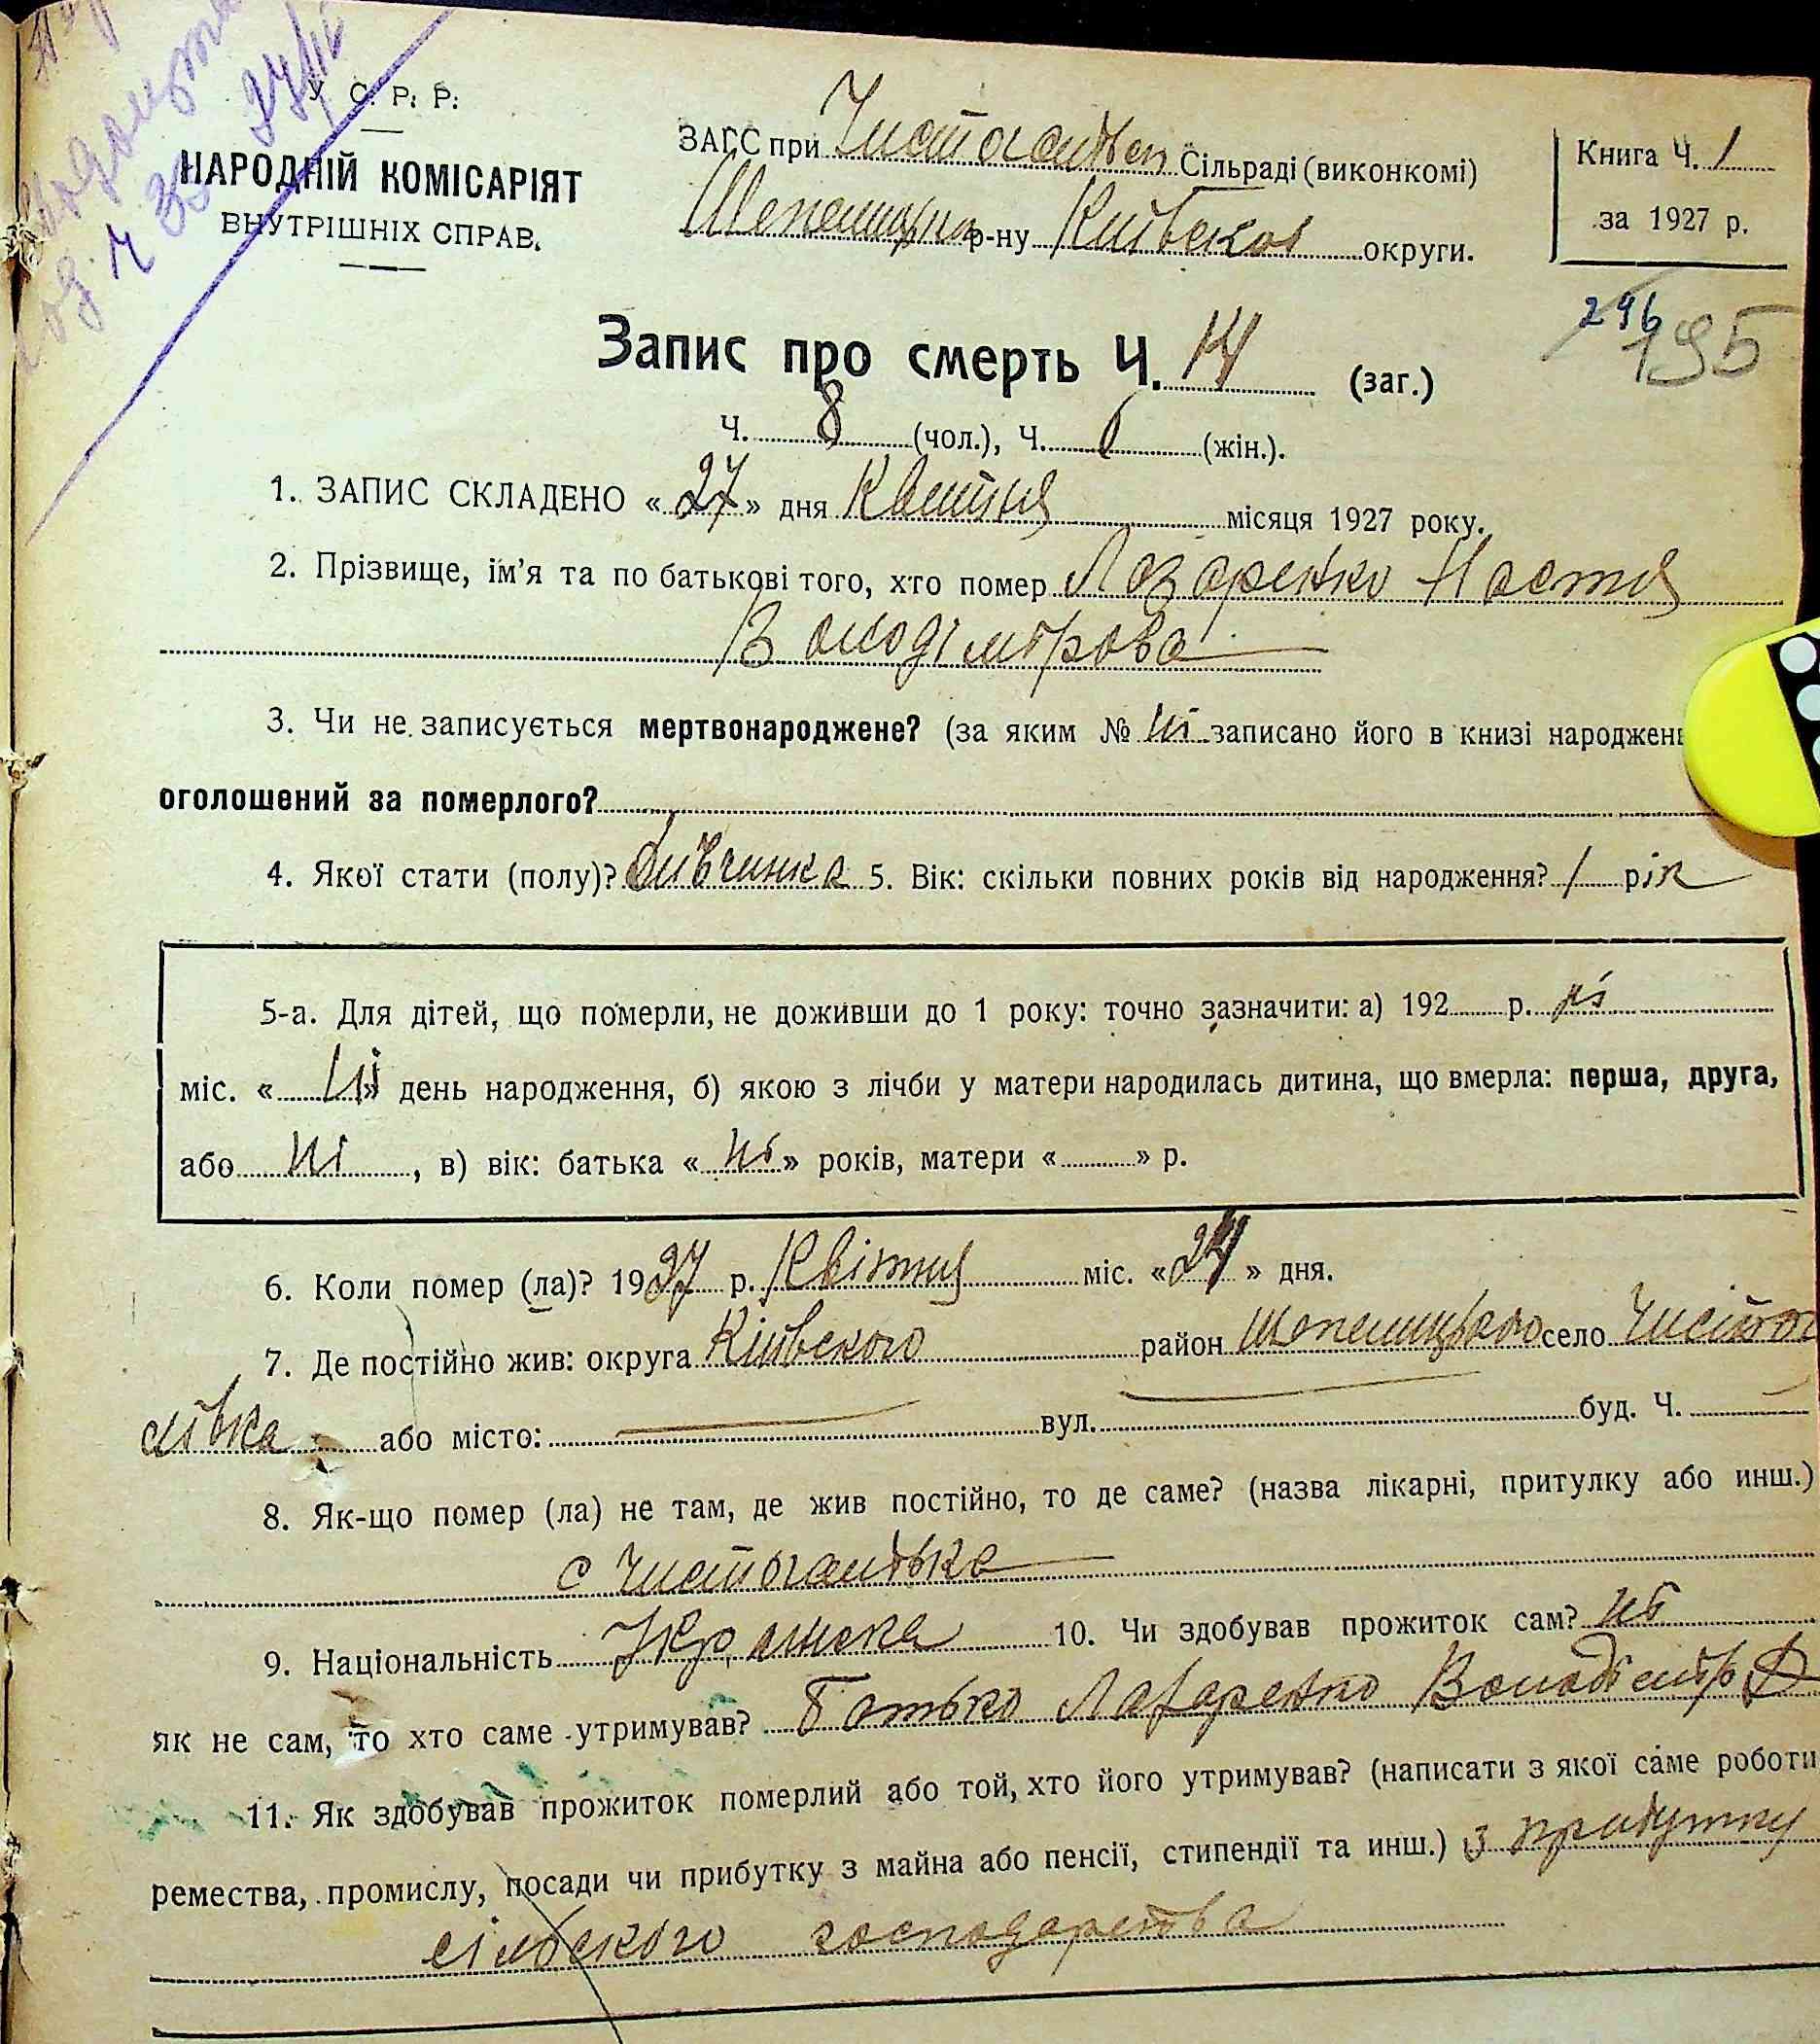 У. С. Р. Р.
НАРОДНІЙ КОМІСАРІЯТ
ВНУТРІШНІХ СПРАВ.
ЗАГС при Чистогалівск Сільраді (виконкомі)
Шепелицьк р-ну Київської округи.
Книга Ч. 1
за 1927 р.
296
195
Запис про смерть Ч. 14 (заг.)
Ч. 8 (чол.), Ч. 6 (жін.).
1. ЗАПИС СКЛАДЕНО « 27 » дня Квітня місяця 1927 року.
2. Прізвище, ім'я та по батькові того, хто помер Лазаренко Настя
Володімірова
3. Чи не записується мертвонароджене? (за яким № ні записано його в книзі народжен
оголошений за померлого?
4. Якої стати (полу)? Дівчинка 5. Вік: скільки повних років від народження? 1 рік
5-а. Для дітей, що померли, не доживши до 1 року: точно зазначити: а) 192 р. ні
міс. « ні » день народження, б) якою з лічби у матери народилась дитина, що вмерла: перша, друга,
або ні , в) вік: батька « ні » років, матери « » р.
6. Коли помер (ла)? 1927 р. Квітня міс. « 24 » дня.
7. Де постійно жив: округа Київського район Шепелицького село Чистога
лівка або місто: вул. буд. Ч.
8. Як-що помер (ла) не там, де жив постійно, то де саме? (назва лікарні, притулку або инш.)
с Чистогалівка
9. Національність Українска 10. Чи здобував прожиток сам? ні
як не сам, то хто саме утримував? Батько Лазаренко Володімір
11. Як здобував прожиток померлий або той, хто його утримував? (написати з якої саме роботи
ремества, промислу, посади чи прибутку з майна або пенсії, стипендії та инш.) з прибутку
сільского господарства